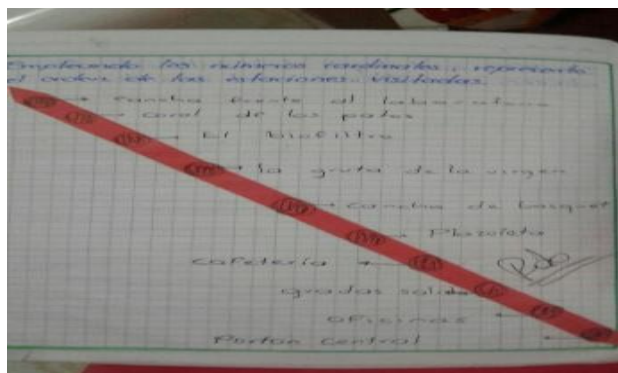 Empleando los números cardinales, represento
el orden de las estaciones visitadas.
cancha frente al laboratorio
coral de los patos
El biofiltro
la gruta de la virgen
cancha de basquet
Plazoleta
cafetería
gradas salida
oficinas
Porton central